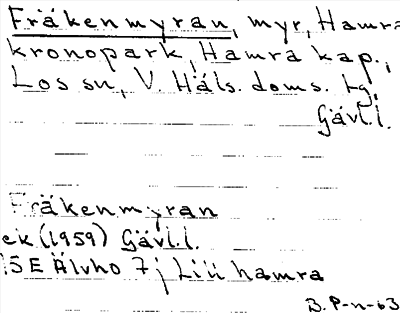 Fräkenmyran, myr, Hamra
kronopark, Hamra kap.,
Los sn, V. Häls. doms. tg.
Gävl.l.
Fräkenmyran
ek (1959) Gävl.l.
15E Älvho 7j Lill hamra
B. P-n-63